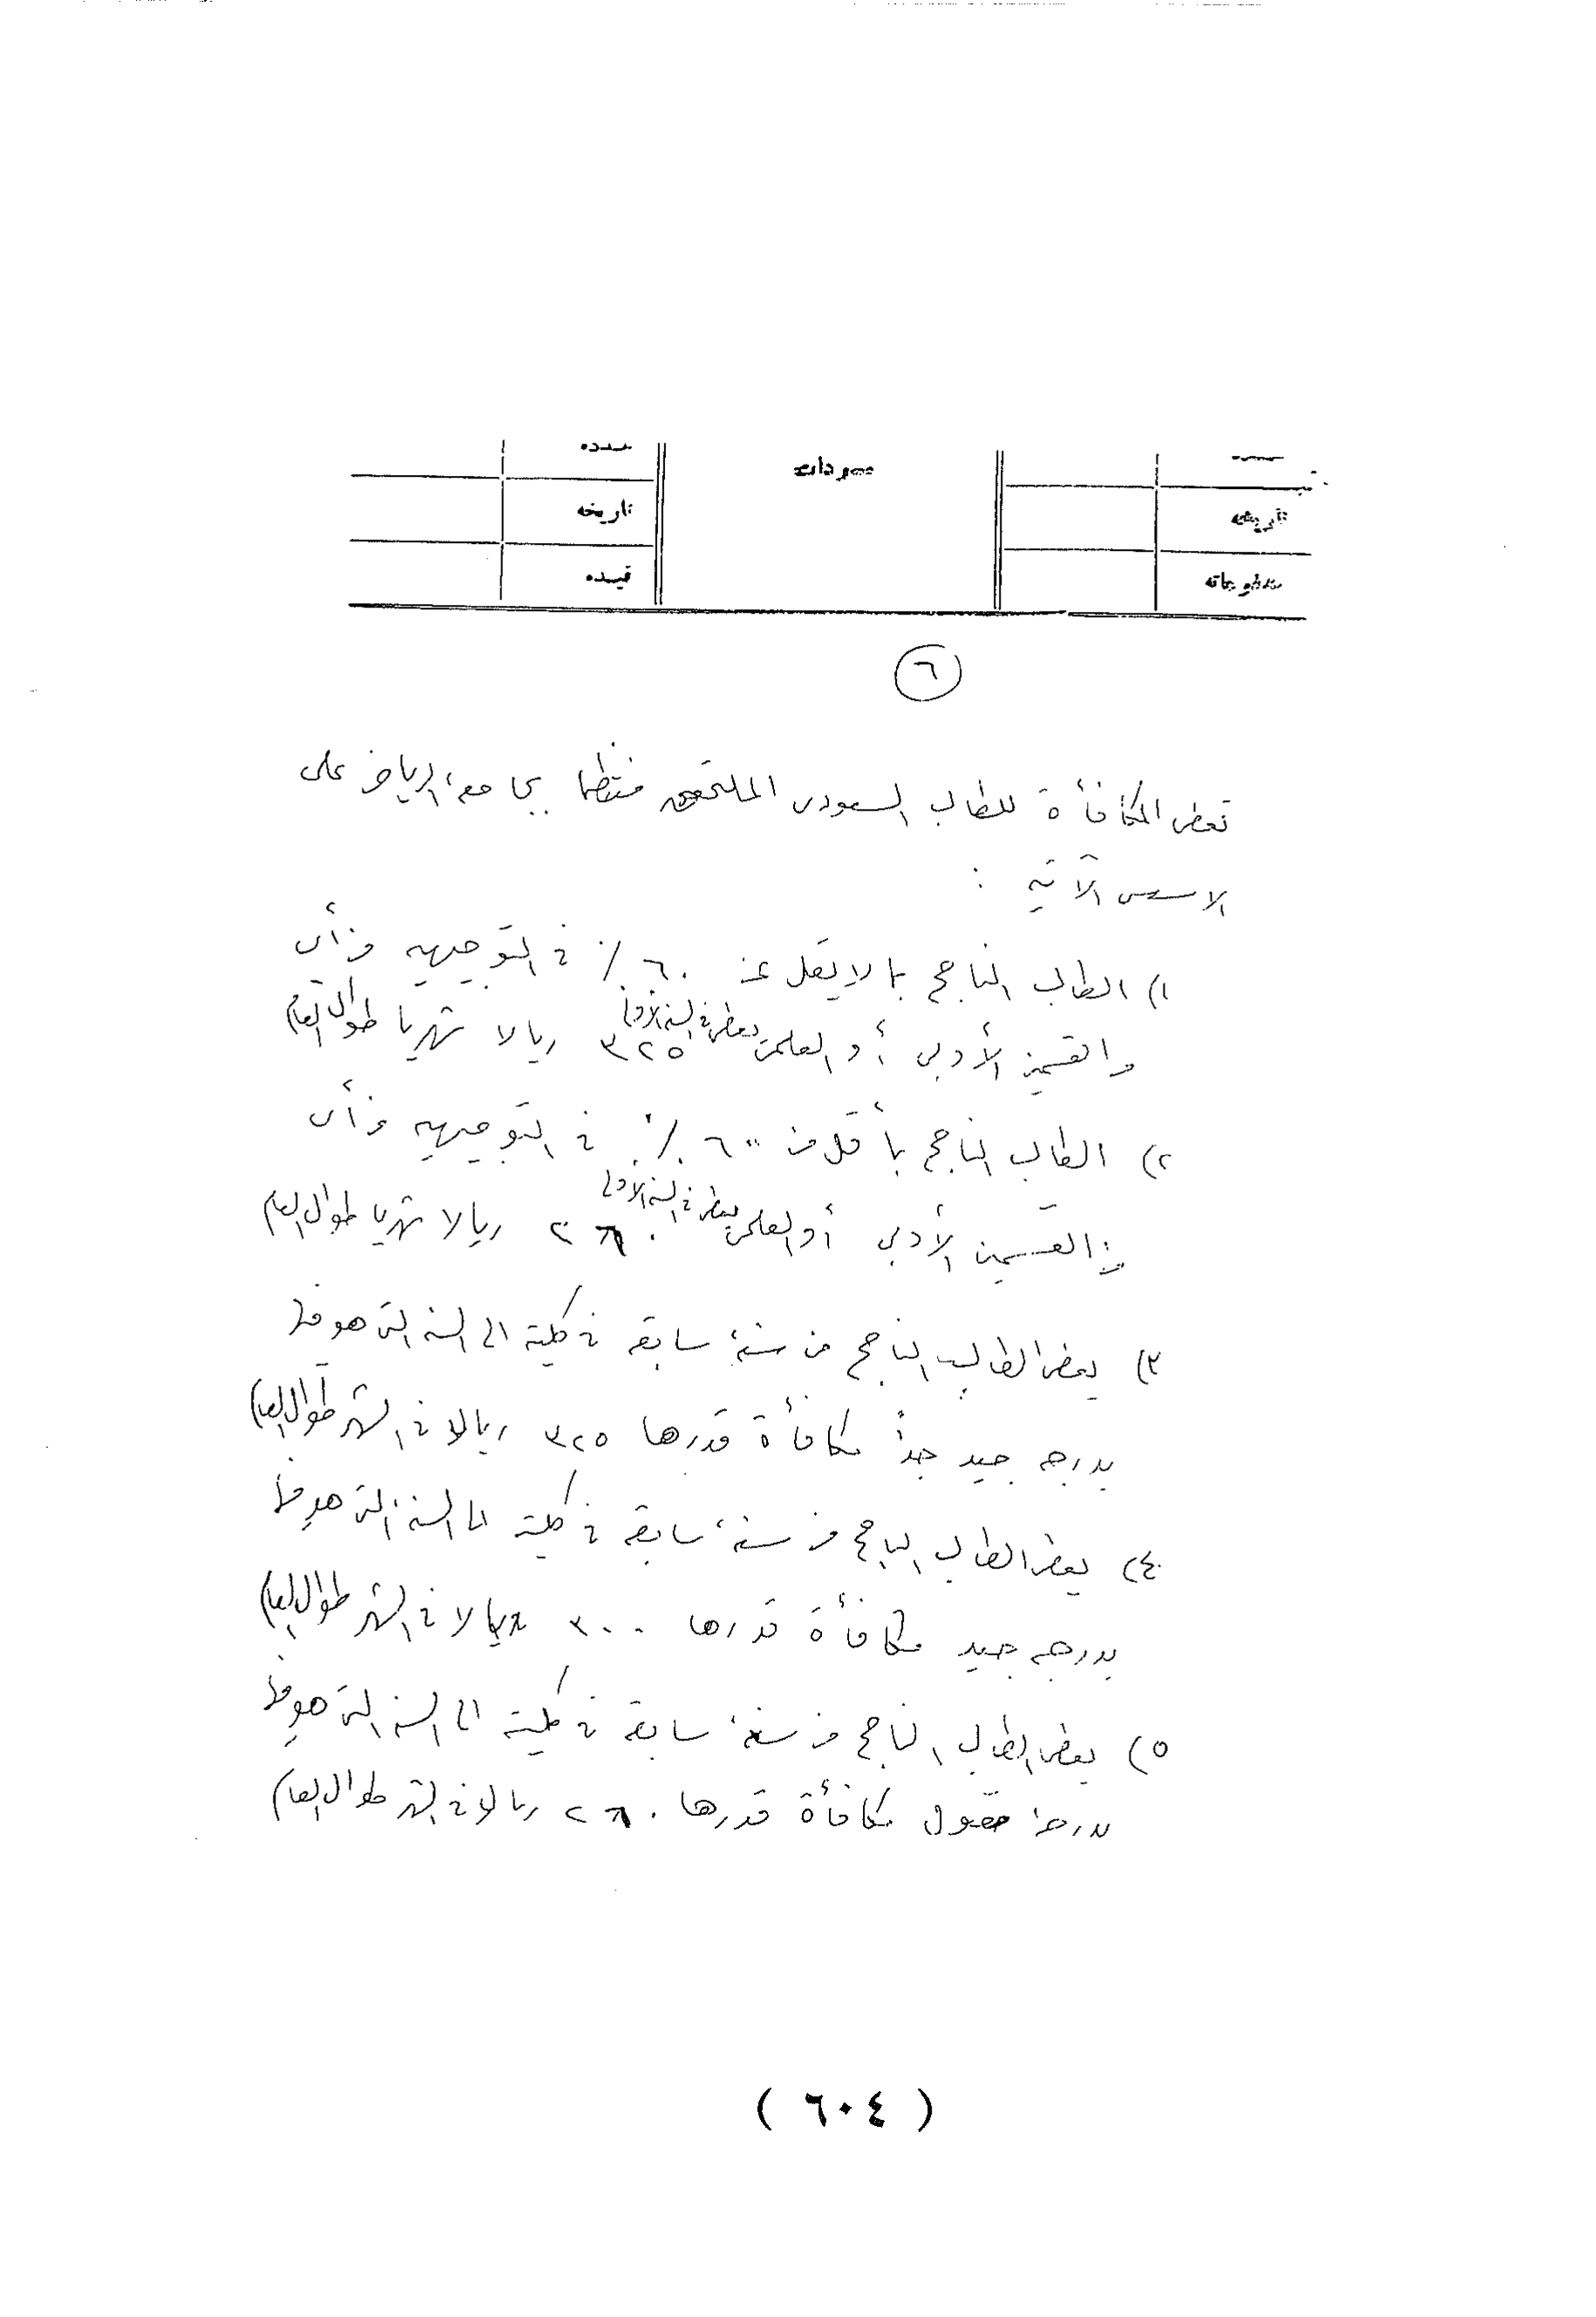 عدده
تاريخه
تاريخه
قيده
٦
تعطى المكافأة للطالب السعودى الملتحق منتظما بجامعة الرياض على
الاسس الآتيه :
١) الطالب الناجح بما لا يقل عن ٦٠٪ فى التوجيهيه من أى
من القسمين الأدبى أو العلمى يعطى فى السنة الأولى ٣٢٥ ريالا شهريا طوال العام
٢) الطالب الناجح بأقل من ٦٠٪ فى التوجيهيه من أى
من القسمين الأدبى أو العلمى يعطى فى السنة الأولى ٢٦٠ ريالا شهريا طوال العام
٣) يعطى الطالب الناجح من سنة سابقه فى كليته الى السنه التى هو فيها
بدرجه جيد جداً مكافأة قدرها ٣٢٥ ريالا فى الشهر طوال العام
٤) يعطى الطالب الناجح من سنة سابقه فى كليته الى السنة التى هو فيها
بدرجه جيد مكافأة قدرها ٣٠٠ ريالا فى الشهر طوال العام
٥) يعطى الطالب الناجح من سنة سابقه فى كليته الى السنه التى هو فيها
بدرجة مقبول مكافأة قدرها ٢٦٠ ريالا فى الشهر طوال العام
( ٦٠٤ )